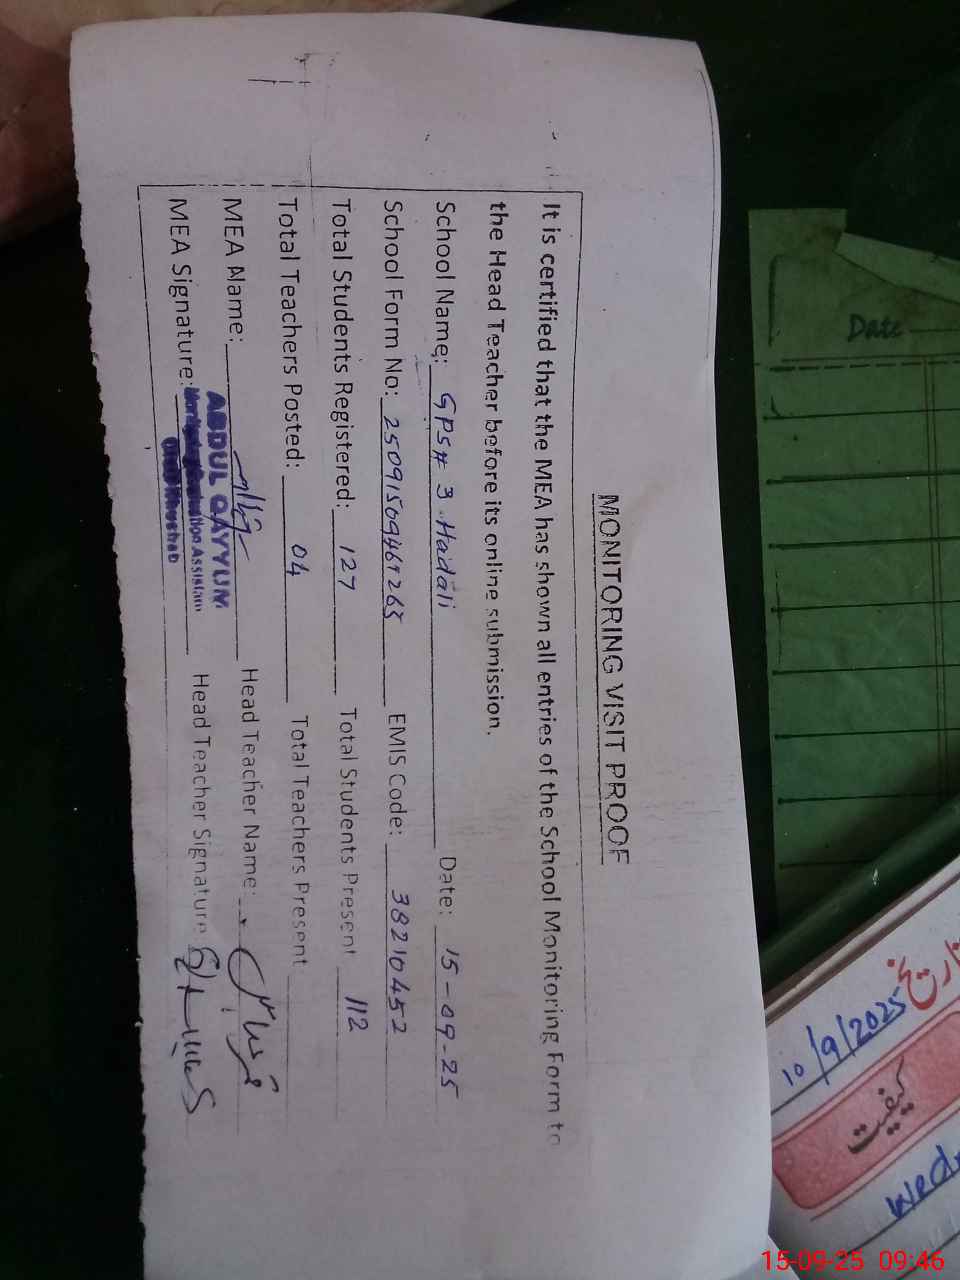 MONITORING VISIT PROOF
It is certified that the MEA has shown all entries of the School Monitoring Form to
the Head Teacher before its online submission.
School Name: GPS# 3 Hadali Date: 15-09-25
School Form No: EMIS Code: 38210452
Total Students Registered: 127 Total Students Present 112
Total Teachers Posted: 04 Total Teachers Present
MEA Name: Head Teacher Name:
MEA Signature: Head Teacher Signature
ABDUL QAYYUM
Assistant
Date
تاریخ
10/9/2025
کیفیت
15-09-25 09:46